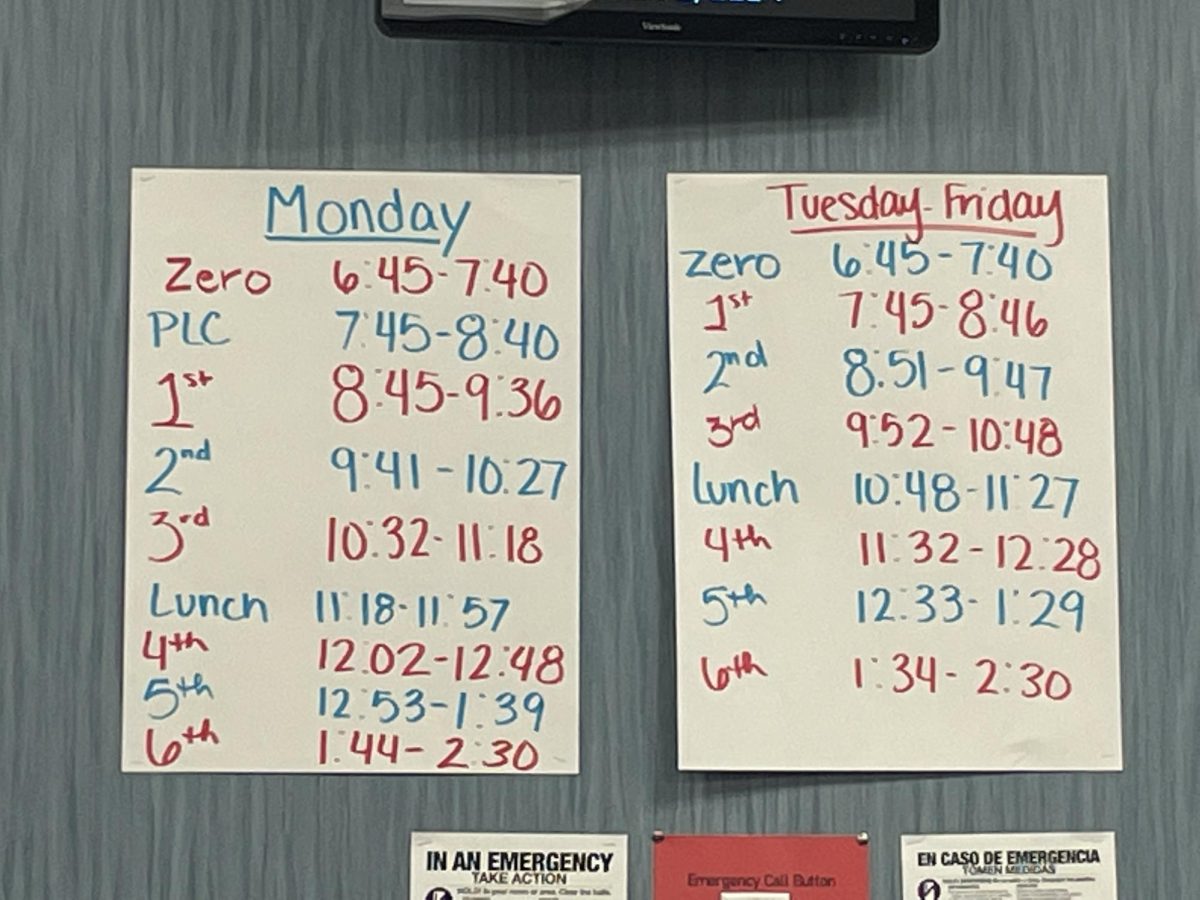 ViewSonic
Monday
Zero 6:45-7:40
PLC 7:45-8:40
1st 8:45-9:36
2nd 9:41-10:27
3rd 10:32-11:18
Lunch 11:18-11:57
4th 12:02-12:48
5th 12:53-1:39
6th 1:44-2:30
Tuesday-Friday
Zero 6:45-7:40
1st 7:45-8:46
2nd 8:51-9:47
3rd 9:52-10:48
Lunch 10:48-11:27
4th 11:32-12:28
5th 12:33-1:29
6th 1:34-2:30
IN AN EMERGENCY
TAKE ACTION
Emergency Call Button
EN CASO DE EMERGENCIA
TOMEN MEDIDAS